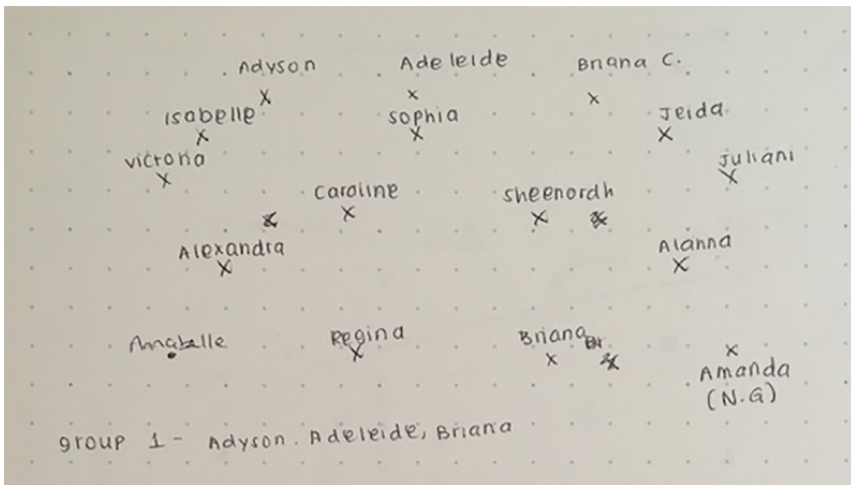 Adyson Adeleide Briana C.
Isabelle Sophia Jeida
Victoria Juliani
Caroline Sheenordh
Alexandra Alanna
Annabelle Regina Briana
Amanda
(N.G)
group 1 - Adyson. Adeleide, Briana